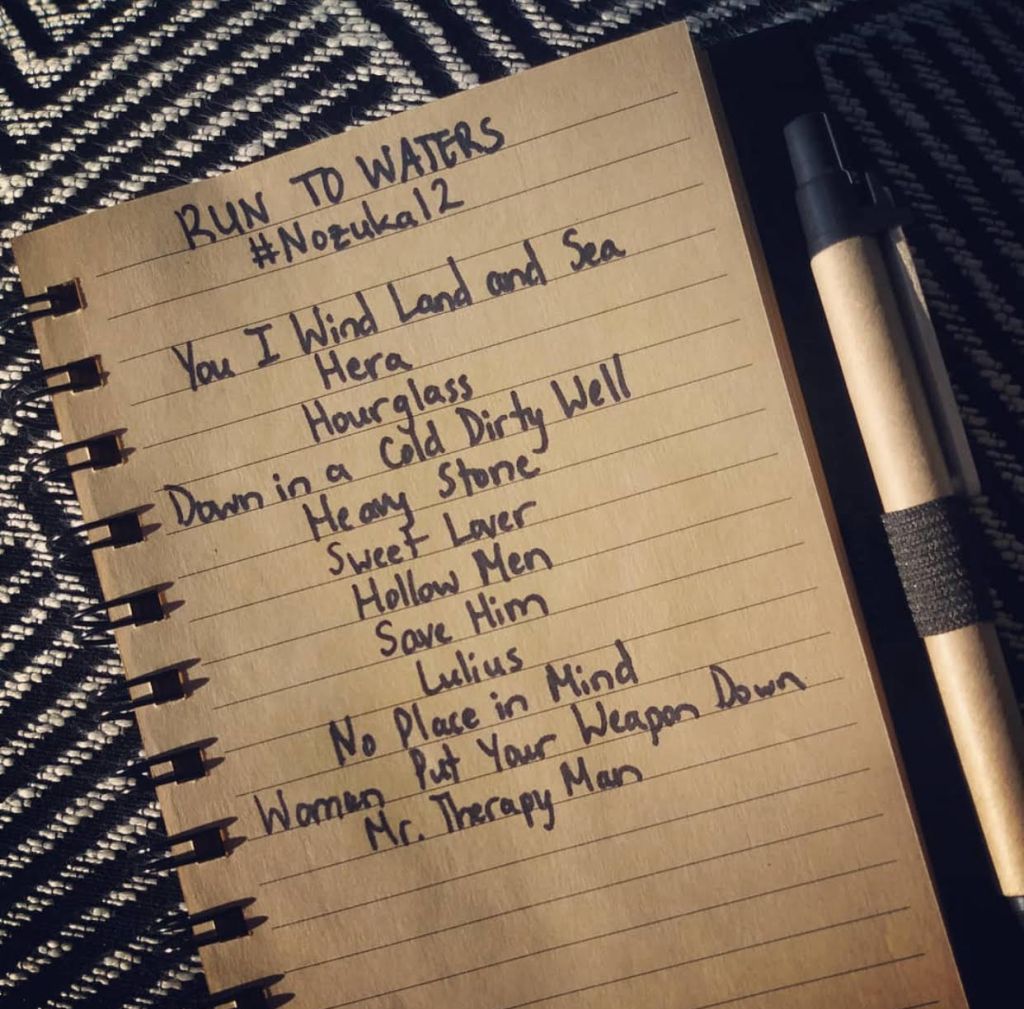 RUN TO WATERS
#Nozuka12
You I Wind Land and Sea
Hera
Hourglass
Down in a Cold Dirty Well
Heavy Stone
Sweet Lover
Hollow Men
Save Him
Lulius
No Place in Mind
Woman Put Your Weapon Down
Mr. Therapy Man